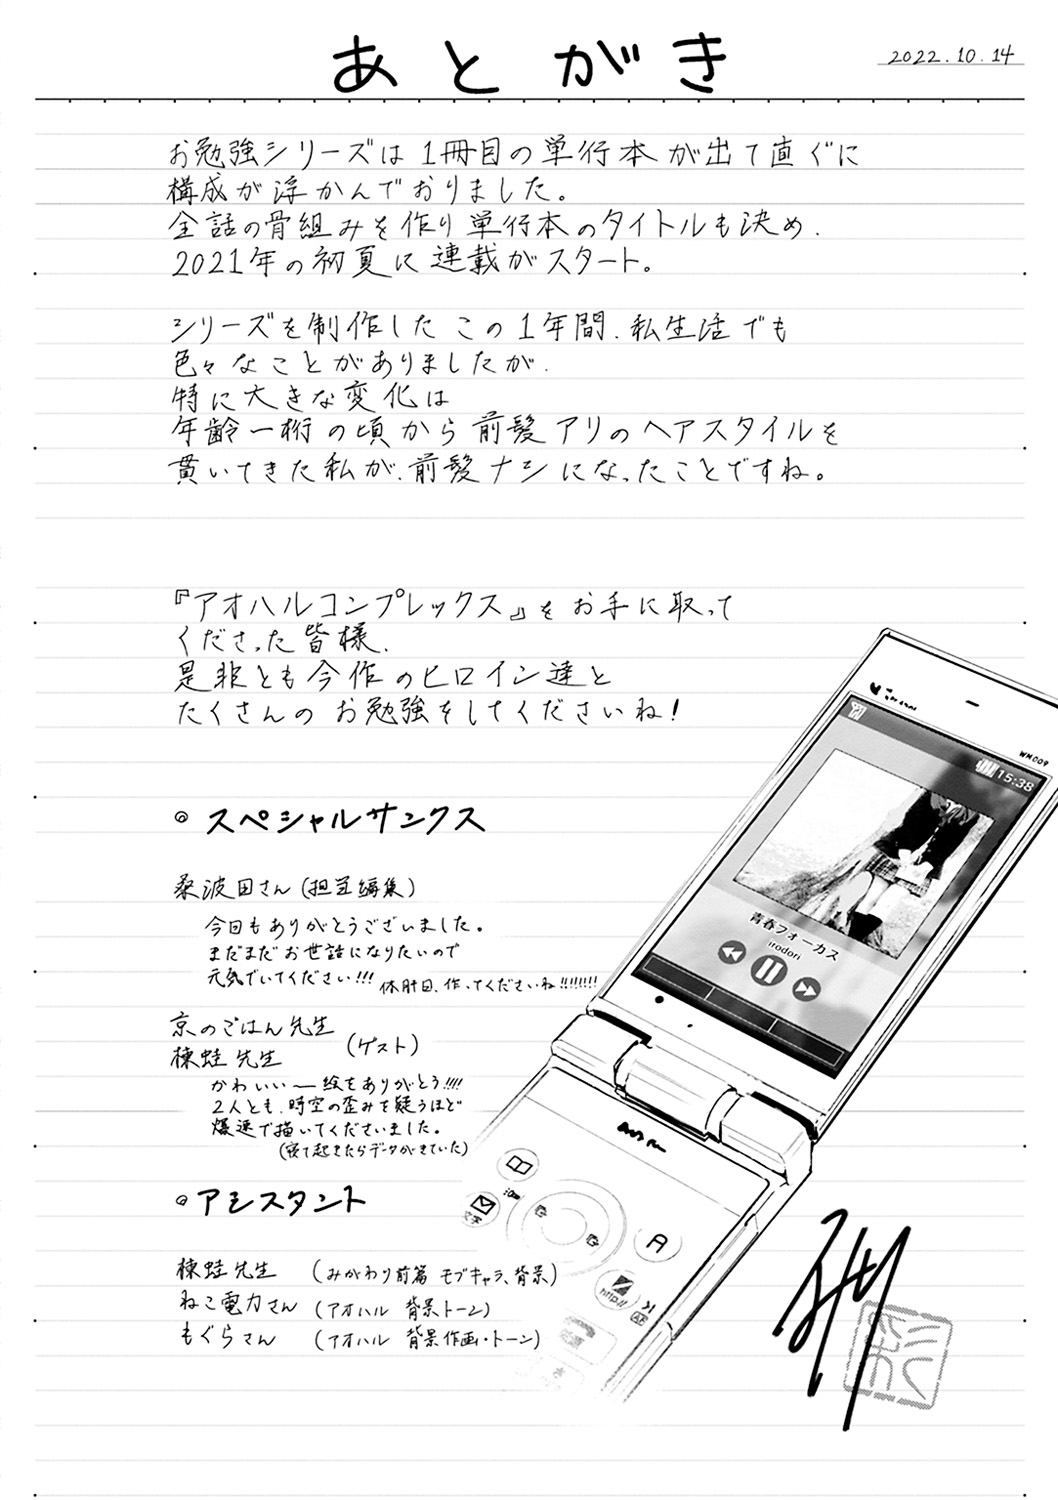 あとがき
2022.10.14
お勉強シリーズは1冊目の単行本が出て直ぐに
構成が浮かんでおりました。
全話の骨組みを作り単行本のタイトルも決め、
2021年の初夏に連載がスタート。
シリーズを制作したこの1年間、私生活でも
色々なことがありましたが、
特に大きな変化は
年齢一桁の頃から前髪アリのヘアスタイルを
貫いてきた私が、前髪ナシになったことですね。
『アオハルコンプレックス』をお手に取って
くださった皆様、
是非とも今作のヒロイン達と
たくさんのお勉強をしてくださいね!
◎スペシャルサンクス
桑波田さん(担当編集)
今日もありがとうございました。
まだまだお世話になりたいので
元気でいてください!!!
休肝日、作ってくださいね!!!!!!!!
京のごはん先生
棟蛙先生
(ゲスト)
かわいいー絵をありがとう!!!!
2人とも、時空の歪みを疑うほど
爆速で描いてくださいました。
(寝て起きたらデータがきていた)
◎アシスタント
棟蛙先生 (みがわり前篇 モブキャラ、背景)
ねこ電力さん (アオハル 背景トーン)
もぐらさん (アオハル 背景作画・トーン)
WM009
15:38
青春フォーカス
irodori
文字
A
http://